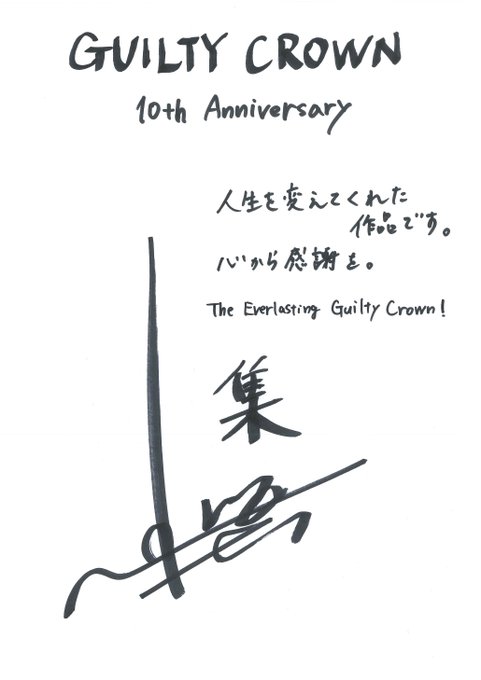 GUILTY CROWN
10th Anniversary
人生を変えてくれた
作品です。
心から感謝を。
The Everlasting Guilty Crown!
集